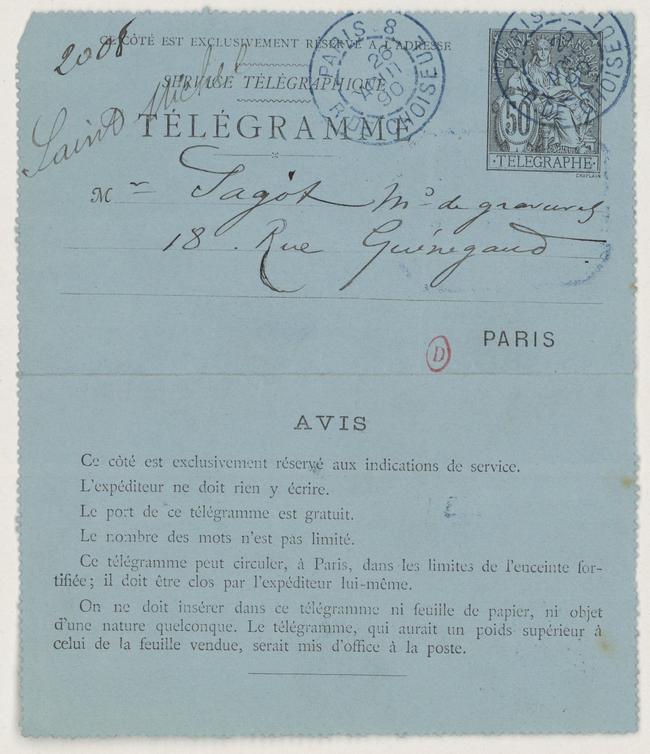 2008
CE CÔTÉ EST EXCLUSIVEMENT RÉSERVÉ A L'ADRESSE
SERVICE TÉLÉGRAPHIQUE
Saint Michel
TÉLÉGRAMME
PARIS 8
26
90
R. DE CHOISEUL
PARIS
CHOISEUL
50
TELEGRAPHE
CHAPLAIN
Mr Sagot Md de gravures
18. Rue Guénégaud.
D
PARIS
AVIS
Ce côté est exclusivement réservé aux indications de service.
L'expéditeur ne doit rien y écrire.
Le port de ce télégramme est gratuit.
Le nombre des mots n'est pas limité.
Ce télégramme peut circuler, à Paris, dans les limites de l'enceinte for-
tifiée; il doit être clos par l'expéditeur lui-même.
On ne doit insérer dans ce télégramme ni feuille de papier, ni objet
d'une nature quelconque. Le télégramme, qui aurait un poids supérieur à
celui de la feuille vendue, serait mis d'office à la poste.